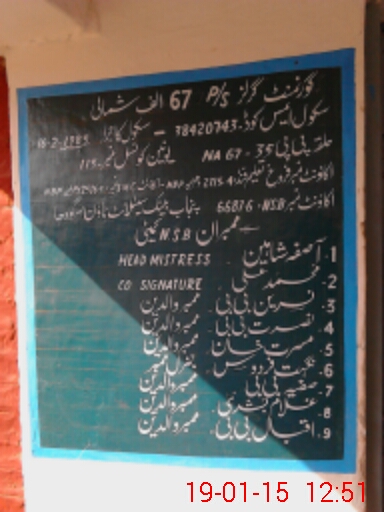 گورنمنٹ گرلز P/S 67 الف شمالی
سکول ایمس کوڈ-38420743 - سکول کا اجرا 16-2-1985
حلقہ پی پی 35 - NA 67 یونین کونسل نمبر 115
اکاؤنٹ نمبر فروغ تعلیم فنڈ
اکاؤنٹ نمبر NSB - 66816 پنجاب بینک سیٹلائٹ ٹاؤن سرگودھا
ممبران N.S.B کمیٹی
1- آصفہ شاہین HEAD MISTRESS
2- محمد علی CO SIGNATURE
3- نسرین بی بی ممبر والدین
4- نصرت بی بی ممبر والدین
5- مسرت خان ممبر والدین
6- نگہت فردوس جنرل ممبر
7- صغیر بی بی ممبر والدین
8- غلام ممبر والدین
9- اقبال بی بی ممبر والدین
19-01-15 12:51